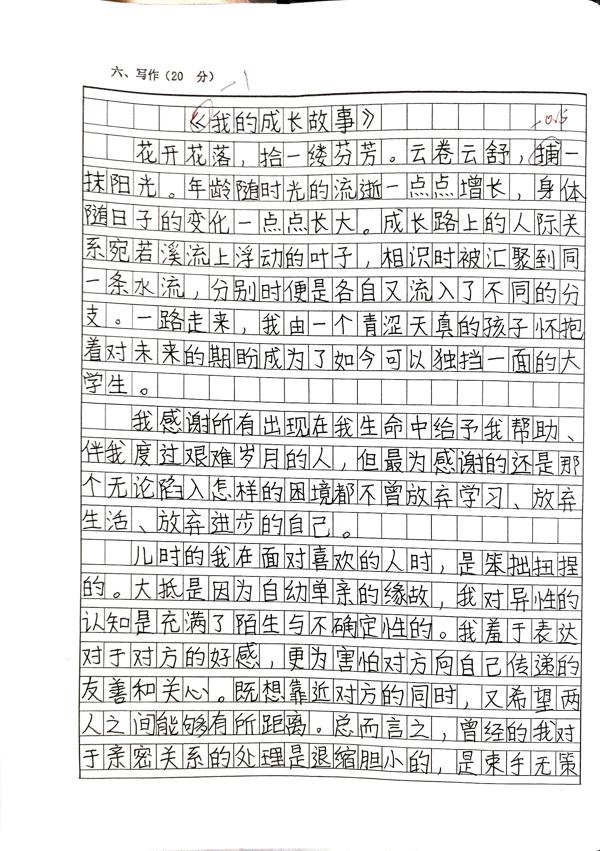 六、写作(20 分)
-1
《我的成长故事》
-0.5
花开花落，拾一缕芬芳。云卷云舒，捕一
抹阳光。年龄随时光的流逝一点点增长，身体
随日子的变化一点点长大。成长路上的人际关
系宛若溪流上浮动的叶子，相识时被汇聚到同
一条水流，分别时便是各自又流入了不同的分
支。一路走来，我由一个青涩天真的孩子怀抱
着对未来的期盼成为了如今可以独挡一面的大
学生。
我感谢所有出现在我生命中给予我帮助、
伴我度过艰难岁月的人，但最为感谢的还是那
个无论陷入怎样的困境都不曾放弃学习、放弃
生活、放弃进步的自己。
儿时的我在面对喜欢的人时，是笨拙扭捏
的。大抵是因为自幼单亲的缘故，我对异性的
认知是充满了陌生与不确定性的。我羞于表达
对于对方的好感，更为害怕对方向自己传递的
友善和关心。既想靠近对方的同时，又希望两
人之间能够有所距离。总而言之，曾经的我对
于亲密关系的处理是退缩胆小的，是束手无策